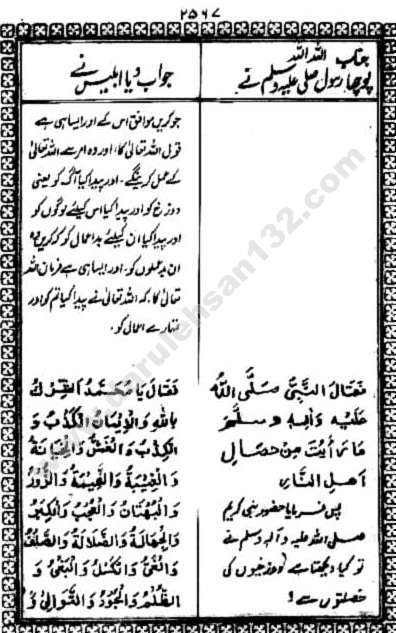 ۲۵۶۷
جناب اللہ اللہ
پوچھا رسول صلی علیہ وسلم نے
جواب دیا ابلیس نے
جو کریں موافق اس کے اور ایسا ہی ہے
قول اللہ تعالیٰ کا، اور وہ امر سے اللہ تعالیٰ
کے عمل کرینگے۔ اور پیدا کیا آگ کو یعنی
دوزخ کو اور پیدا کیا اس کیلئے لوگوں کو
اور پیدا کیا ان کیلئے بد اعمال کو کہ کریں وہ
ان بد عملوں کو، اور ایسا ہی ہے فرمان اللہ
تعالیٰ کا، کہ اللہ تعالیٰ نے پیدا کیا تم کو اور
تمہارے اعمال کو۔
فَقَالَ النَّبِيُّ صَلَّى اللهُ
عَلَيْهِ وَاٰلِهٖ وَسَلَّمَ
مَا رَأَيْتَ مِنْ خِصَالِ
اَهْلِ النَّارِ
پس فرمایا حضور نبی کریم
صلی اللہ علیہ وآلہ وسلم نے
تو کیا دیکھتا ہے دوزخیوں کی
خصلتوں سے؟
فَقَالَ يَا مُحَمَّدُ الشِّرْكُ
بِاللهِ وَالْاِيْمَانُ الْكَذِبُ وَ
الْكِذْبُ وَالْغَشُّ وَالْخِيَانَةُ
وَالْغِيْبَةُ وَالنَّمِيْمَةُ وَالزُّوْرُ
وَالْبُهْتَانُ وَالْعُجْبُ وَالْكِبْرُ
وَالْجِهَالَةُ وَالضَّلَالَةُ وَالصَّلَفُ
وَالْغَيُّ وَالْكَسَلُ وَالْبَغْيُ وَ
الظُّلْمُ وَالْجَوْرُ وَالتَّوَانِيْ وَ
www.darulehsan132.com